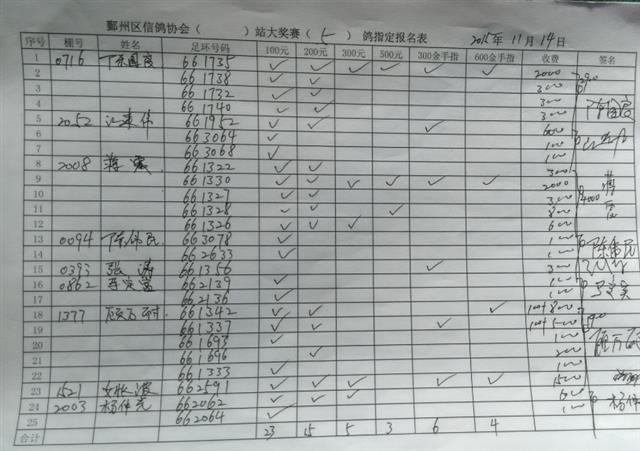 鄞州区信鸽协会（ ）站大奖赛（ ）鸽指定报名表 2015年11月14日
序号 棚号 姓名 足环号码 100元 200元 300元 500元 300金手指 600金手指 收费 签名
1 0716 陈国良 661735 ✓ ✓ ✓ ✓ ✓ ✓ 2000
2 661738 ✓ ✓ 300
3 661732 ✓ ✓ 300
4 661740 ✓ ✓ 300
5 2052 661952 ✓ ✓ ✓ 600
6 663064 ✓ 100
7 663068 ✓ 100
8 2008 661322 ✓ ✓ 300
9 661330 ✓ ✓ ✓ ✓ ✓ ✓ 2000
10 661327 ✓ ✓ 300 4000
11 661328 ✓ ✓ ✓ 800
12 661326 ✓ ✓ ✓ 600
13 0094 陈伟民 663078 ✓ 100 陈伟民
14 662633 ✓ 100
15 0393 张涛 661356 ✓ 300
16 0862 662139 ✓ 100
17 662136 ✓ 100
18 1377 661342 ✓ ✓ ✓
19 661337 ✓ ✓ ✓
20 661693 ✓ 100
21 661696 ✓ 200
22 661333 ✓ 100
23 1521 662591 ✓ ✓ ✓ ✓ ✓ 1500
24 2003 杨伟光 662062 ✓ ✓ ✓ 600
25 662064 ✓ 100
合计 23 15 5 3 6 4